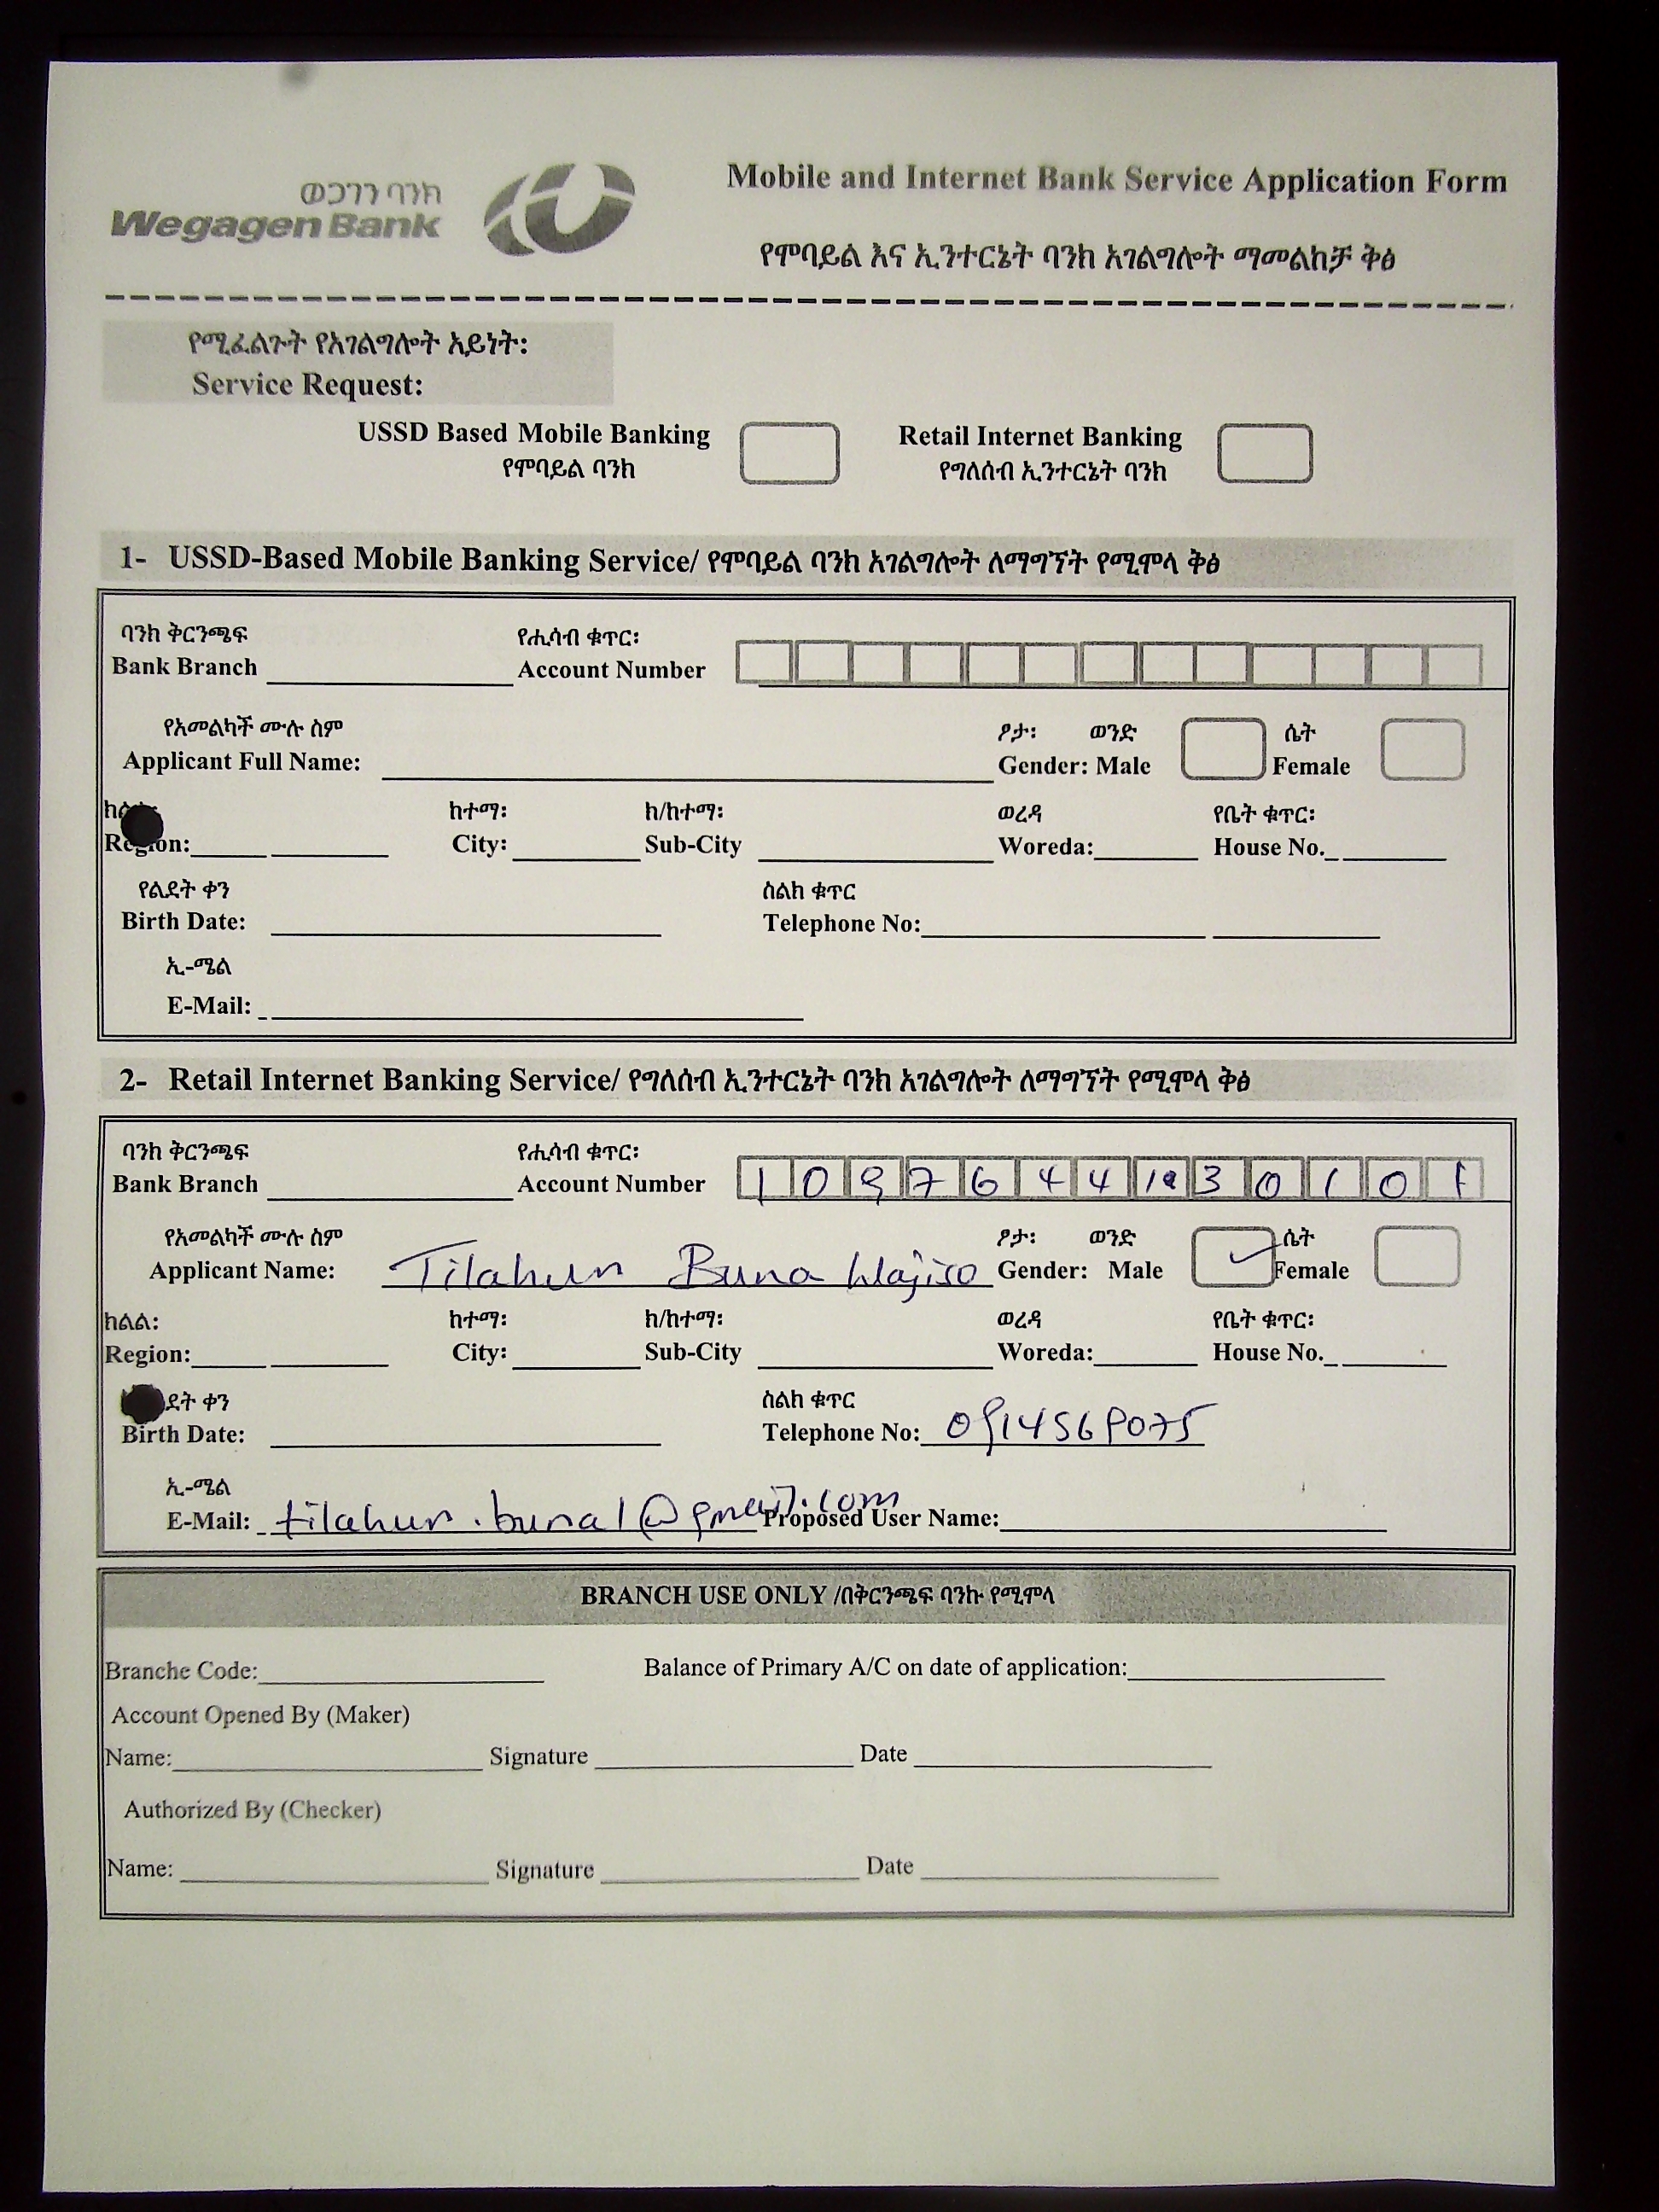 ወጋገን ባንክ
Wegagen Bank
Mobile and Internet Bank Service Application Form
የሞባይል እና ኢንተርኔት ባንክ አገልግሎት ማመልከቻ ቅፅ
የሚፈልጉት የአገልግሎት አይነት:
Service Request:
USSD Based Mobile Banking Retail Internet Banking
የሞባይል ባንክ የግለሰብ ኢንተርኔት ባንክ
1- USSD-Based Mobile Banking Service/ የሞባይል ባንክ አገልግሎት ለማግኘት የሚሞላ ቅፅ
ባንክ ቅርንጫፍ የሒሳብ ቁጥር:
Bank Branch Account Number
የአመልካች ሙሉ ስም ፆታ: ወንድ ሴት
Applicant Full Name: Gender: Male Female
ከተማ: ክ/ከተማ: ወረዳ የቤት ቁጥር:
Region: City: Sub-City Woreda: House No.
የልደት ቀን ስልክ ቁጥር
Birth Date: Telephone No:
ኢ-ሜል
E-Mail:
2- Retail Internet Banking Service/ የግለሰብ ኢንተርኔት ባንክ አገልግሎት ለማግኘት የሚሞላ ቅፅ
ባንክ ቅርንጫፍ የሒሳብ ቁጥር:
Bank Branch Account Number 1 0 9 7 6 4 4 1 3 0 1 0 1
የአመልካች ሙሉ ስም ፆታ: ወንድ ሴት
Applicant Name: Tilahun Buna Wajiso Gender: Male Female
ክልል: ከተማ: ክ/ከተማ: ወረዳ የቤት ቁጥር:
Region: City: Sub-City Woreda: House No.
ደት ቀን ስልክ ቁጥር
Birth Date: Telephone No: 0914569075
ኢ-ሜል
E-Mail: tilahun.buna1@gmail.com Proposed User Name:
BRANCH USE ONLY /በቅርንጫፍ ባንኩ የሚሞላ
Branche Code: Balance of Primary A/C on date of application:
Account Opened By (Maker)
Name: Signature Date
Authorized By (Checker)
Name: Signature Date